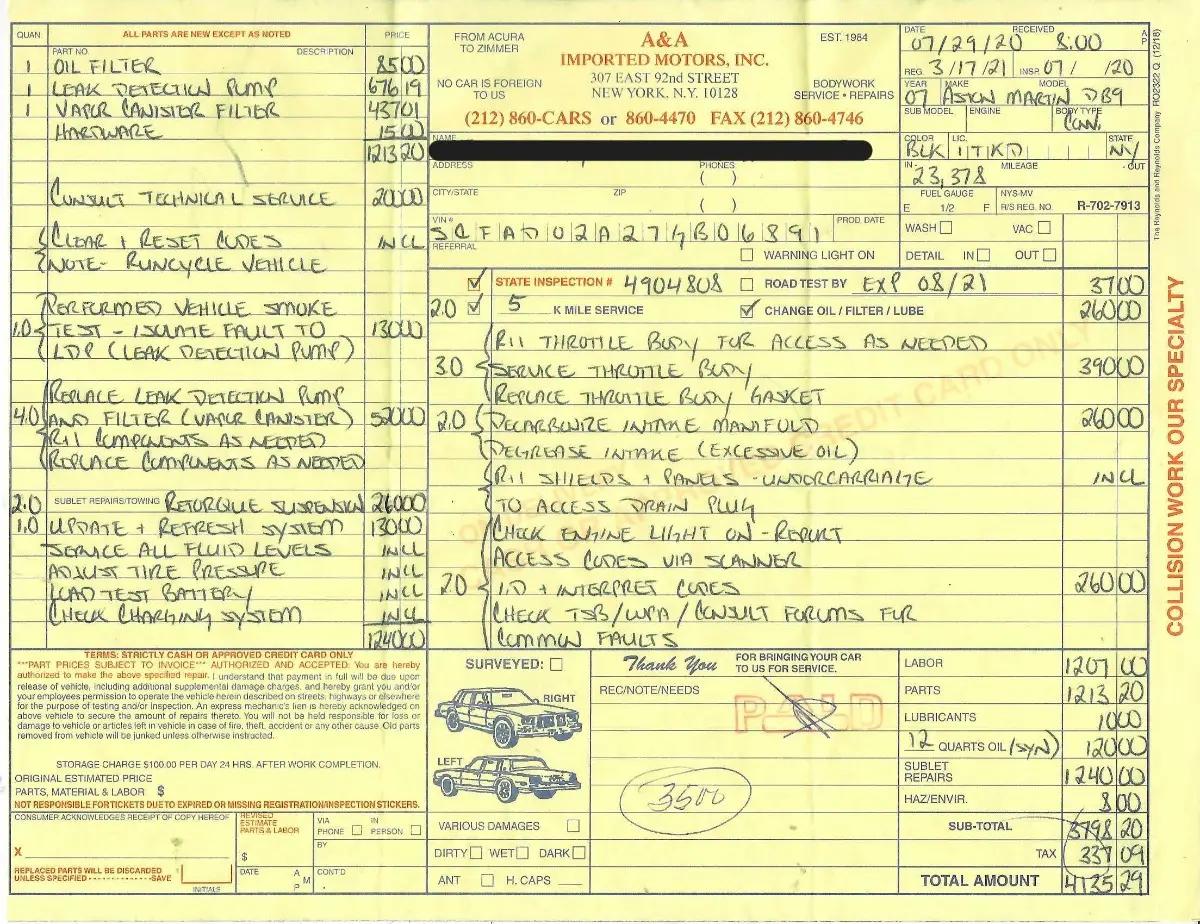 QUAN. ALL PARTS ARE NEW EXCEPT AS NOTED PRICE
PART NO. DESCRIPTION
1 OIL FILTER 85 00
1 LEAK DETECTION PUMP 676 19
1 VAPOR CANISTER FILTER 437 01
HARDWARE 15 00
1213 20
CONSULT TECHNICAL SERVICE 200 00
CLEAR + RESET CODES INCL
NOTE- RUNCYCLE VEHICLE
PERFORMED VEHICLE SMOKE
1.0 TEST - ISOLATE FAULT TO 130 00
LDP (LEAK DETECTION PUMP)
REPLACE LEAK DETECTION PUMP
4.0 AND FILTER (VAPOR CANISTER) 520 00
R+I COMPONENTS AS NEEDED
REPLACE COMPONENTS AS NEEDED
2.0 SUBLET REPAIRS/TOWING RETORQUE SUSPENSION 260 00
1.0 UPDATE + REFRESH SYSTEM 130 00
SERVICE ALL FLUID LEVELS INCL
ADJUST TIRE PRESSURE INCL
LOAD TEST BATTERY INCL
CHECK CHARGING SYSTEM INCL
1240 00
FROM ACURA
TO ZIMMER
NO CAR IS FOREIGN
TO US
A&A
IMPORTED MOTORS, INC.
307 EAST 92nd STREET
NEW YORK, N.Y. 10128
EST. 1964
BODYWORK
SERVICE • REPAIRS
(212) 860-CARS or 860-4470 FAX (212) 860-4746
NAME
ADDRESS PHONES
( )
CITY/STATE ZIP
( )
VIN # PROD. DATE
SCFAD02A27GB06891
REFERRAL WARNING LIGHT ON
DATE RECEIVED A P
07/29/20 8:00
REG. 3/17/21 INSP. 07/ /20
YEAR MAKE MODEL
07 ASTON MARTIN DB9
SUB MODEL ENGINE BODY TYPE
CONV.
COLOR LIC. STATE
BLK 1TKD NY
IN - MILEAGE - OUT
23,378
FUEL GAUGE NYS-MV
E 1/2 F R/S REG. NO. R-702-7913
WASH VAC
DETAIL IN OUT
STATE INSPECTION # 4904808 ROAD TEST BY EXP 08/21 37 00
2.0 5 K MILE SERVICE CHANGE OIL / FILTER / LUBE 260 00
R+I THROTTLE BODY FOR ACCESS AS NEEDED
3.0 SERVICE THROTTLE BODY 390 00
REPLACE THROTTLE BODY GASKET
2.0 DECARBONIZE INTAKE MANIFOLD 260 00
DEGREASE INTAKE (EXCESSIVE OIL)
R+I SHIELDS + PANELS - UNDORCARRIAGE INCL
TO ACCESS DRAIN PLUG
CHECK ENGINE LIGHT ON - REPORT
ACCESS CODES VIA SCANNER
2.0 I.D + INTERPRET CODES 260 00
CHECK TSB/WPA/CONSULT FORUMS FOR
COMMON FAULTS
TERMS: STRICTLY CASH OR APPROVED CREDIT CARD ONLY
***PART PRICES SUBJECT TO INVOICE*** AUTHORIZED AND ACCEPTED: You are hereby
authorized to make the above specified repair. I understand that payment in full will be due upon
release of vehicle, including additional supplemental damage charges, and hereby grant you and/or
your employees permission to operate the vehicle herein described on streets, highways or elsewhere
for the purpose of testing and/or inspection. An express mechanic's lien is hereby acknowledged on
above vehicle to secure the amount of repairs thereto. You will not be held responsible for loss or
damage to vehicle or articles left in vehicle in case of fire, theft, accident or any other cause. Old parts
removed from vehicle will be junked unless otherwise instructed.
STORAGE CHARGE $100.00 PER DAY 24 HRS. AFTER WORK COMPLETION.
ORIGINAL ESTIMATED PRICE
PARTS, MATERIAL & LABOR $
NOT RESPONSIBLE FOR TICKETS DUE TO EXPIRED OR MISSING REGISTRATION/INSPECTION STICKERS.
CONSUMER ACKNOWLEDGES RECEIPT OF COPY HEREOF
X
REPLACED PARTS WILL BE DISCARDED
UNLESS SPECIFIED - - - SAVE
INITIALS
REVISED
ESTIMATE
PARTS & LABOR
$
VIA
PHONE
IN
PERSON
BY
DATE A P M CONT'D
SURVEYED:
RIGHT
LEFT
VARIOUS DAMAGES
DIRTY WET DARK
ANT H. CAPS
Thank You FOR BRINGING YOUR CAR
TO US FOR SERVICE.
REC/NOTE/NEEDS
PAID
3500
LABOR 1207 00
PARTS 1213 20
LUBRICANTS 10 00
12 QUARTS OIL (SYN) 120 00
SUBLET
REPAIRS 1240 00
HAZ/ENVIR. 8 00
SUB-TOTAL 3798 20
TAX 337 09
TOTAL AMOUNT 4135 29
The Reynolds and Reynolds Company RO2322 Q (12/18)
COLLISION WORK OUR SPECIALTY